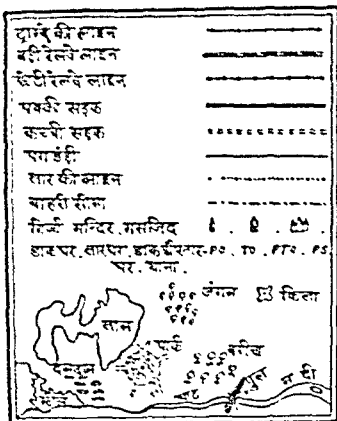 ट्राम्वे की लाइन
बड़ी रेलवे लाइन
छोटी रेलवे लाइन
पक्की सड़क
कच्ची सड़क
पगडंडी
तार की लाइन
बाहरी सीमा
गिर्जा मन्दिर, मसजिद
डाकघर, तारघर, PO. TO. PTO. PS
घर, थाना.
जंगल किला
पार्क
बगीचा
घाट पुल नदी